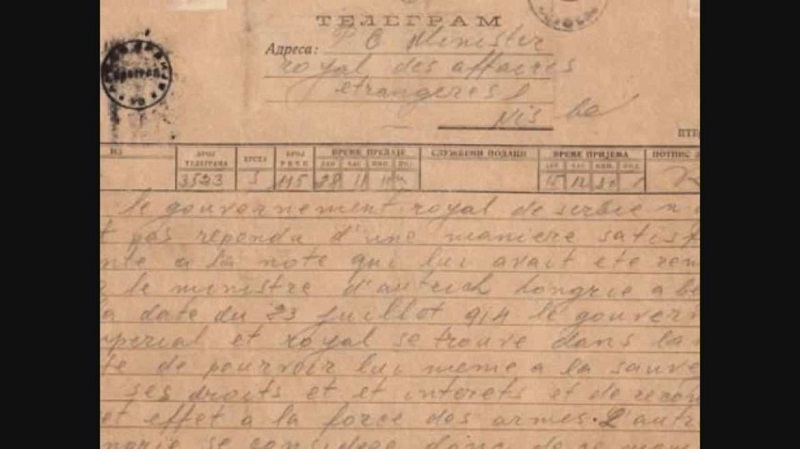 ТЕЛЕГРАМ
Адреса: P. O Minister
royal des affaires
etrangeres
Nis
ИЗ БРОЈ ТЕЛЕГРАМА ВРСТА БРОЈ РЕЧИ ВРЕМЕ ПРЕДАЈЕ СЛУЖБЕНИ ПОДАЦИ ВРЕМЕ ПРИЈЕМА ПОТПИС
ДАН ЧАС МИН. ДАН ЧАС МИН.
3523 115 28 11
le gouvernement royal de serbie n
t pas reponda d'une maniere satisf
nte a la note qui lui avait ete rem
le ministre d'autrich hongrie a be
a date du 23 juillot 914 le gouver
mperial et royal se trouve dans la
te de pourvoir lui meme a la sauve
ses droits et et interets et de recou
et effet a la force des armes. L autr
ngrie se considere donc de ce mom